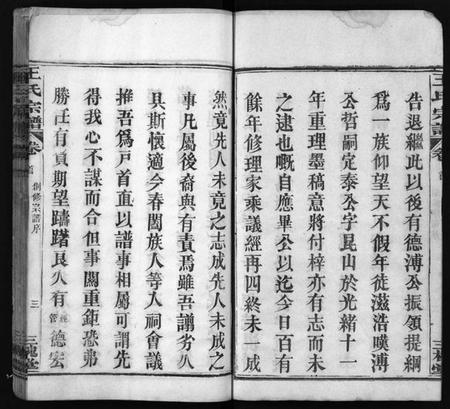 告退繼此以後有德溥公振領提綱
為一族仰望天不假年徒滋浩嘆溥
公哲嗣定泰公字昆山於光緒十一
年重理墨稿意將付梓亦有志而未
之逮也嘅自應畢公以迄今日百有
餘年修理家乘議經再四終未一成
然竟先人未竟之志成先人未成之
事凡屬後裔與有責焉雖吾譾劣久
具斯懷適今春闔族人等入祠會議
推吾爲戸首直以譜事相屬可謂先
得我心不謀而合但事關重鉅恐弟
勝任有負期望躊躇良久有 德宏
王氏宗譜 卷首 創修宗譜序 三 三槐堂